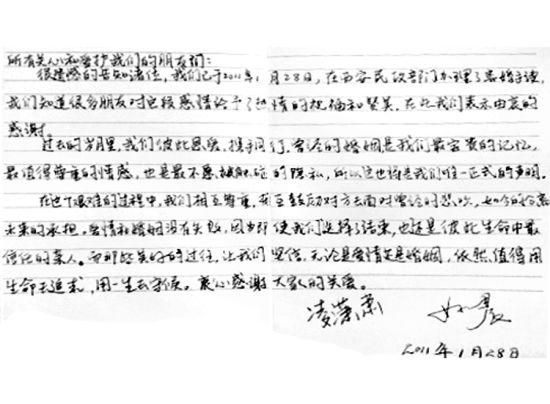 所有关心和爱护我们的朋友们:
很遗憾的告知诸位,我们已于2011年1月28日,在西安民政部门办理了离婚手续,
我们知道很多朋友对这段感情给予了热情的祝福和赞美,在此我们表示由衷的
感谢。
过去的岁月里,我们彼此恩爱,携手同行,曾经的婚姻是我们最宝贵的记忆,
最值得尊重的情感,也是最不愿被触碰的隐私,所以这也将是我们唯一正式的声明。
在这个艰难的过程中,我们相互尊重,相互鼓励对方去面对曾经的悲欢、如今的分离
未来的承担。爱情和婚姻没有失败,因为即使我们选择了结束,也还是彼此生命中最
信任的亲人。而那些美好的过往,让我们坚信,无论是爱情还是婚姻,依然值得用
生命去追求,用一生去守候。衷心感谢大家的关爱。
凌潇肃
2011年1月28日